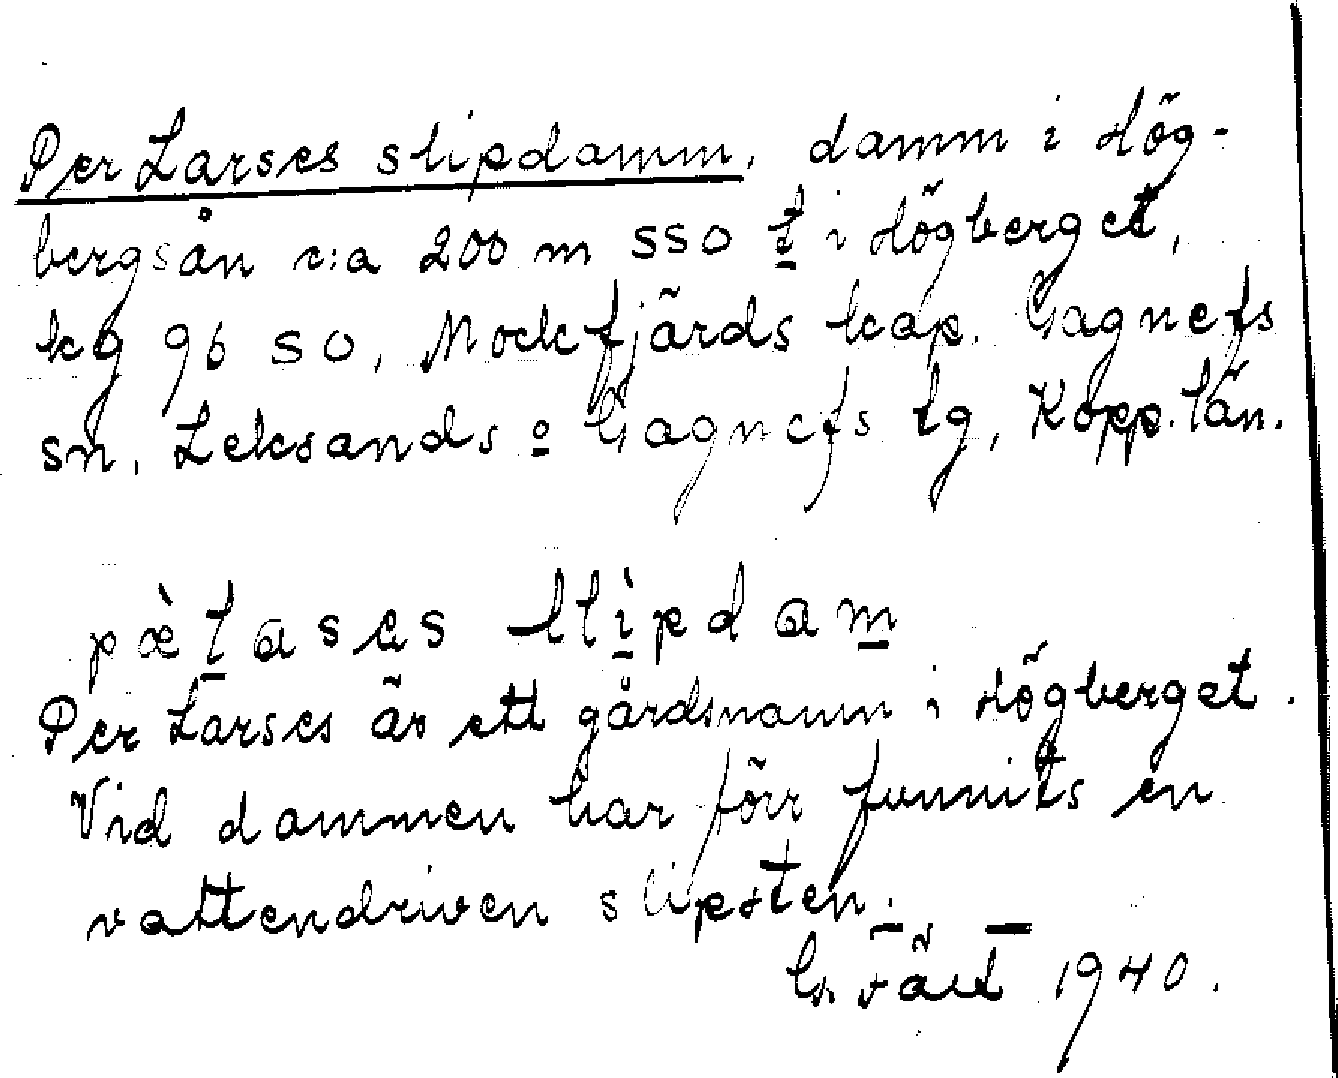 Per Larses slipdamm, damm i Hög-
bergsån c:a 200 m SSO t i Högberget,
kg 96 SO, Mockfjärds kap. Gagnefs
sn, Leksands o Gagnefs lg, Kopp. län.
pæ̀ḷases slìpdam
Per Larses är ett gårdsnamn i Högberget.
Vid dammen har förr funnits en
vattendriven slipsten.
1940.